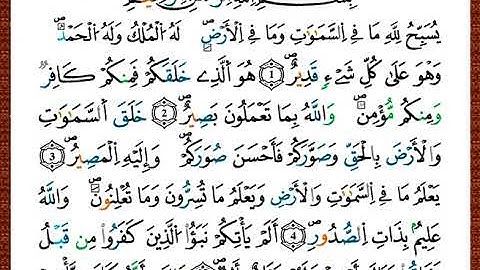 يُسَبِّحُ لِلَّهِ مَا فِے اِ۬لسَّمَٰوَٰتِ وَمَا فِے اِ۬لْأَرْضِۖ لَهُ اُ۬لْمُلْكُ وَلَهُ اُ۬لْحَمْدُۖ
وَهُوَ عَلَىٰ كُلِّ شَےْءٖ قَدِيرٌۖ ١ هُوَ اَ۬لَّذِے خَلَقَكُمْ فَمِنكُمْ كَافِرٞ
وَمِنكُم مُّؤْمِنٞۖ وَاللَّهُ بِمَا تَعْمَلُونَ بَصِيرٌۖ ٢ خَلَقَ اَ۬لسَّمَٰوَٰتِ
وَالْأَرْضَ بِالْحَقِّ وَصَوَّرَكُمْ فَأَحْسَنَ صُوَرَكُمْۖ وَإِلَيْهِ اِ۬لْمَصِيرُۖ ٣
يَعْلَمُ مَا فِے اِ۬لسَّمَٰوَٰتِ وَالْأَرْضِ وَيَعْلَمُ مَا تُسِرُّونَ وَمَا تُعْلِنُونَۖ وَاللَّهُ
عَلِيمُۢ بِذَاتِ اِ۬لصُّدُورِۖ ٤ أَلَمْ يَأْتِكُمْ نَبَؤُاْ اُ۬لَّذِينَ كَفَرُواْ مِن قَبْلُ